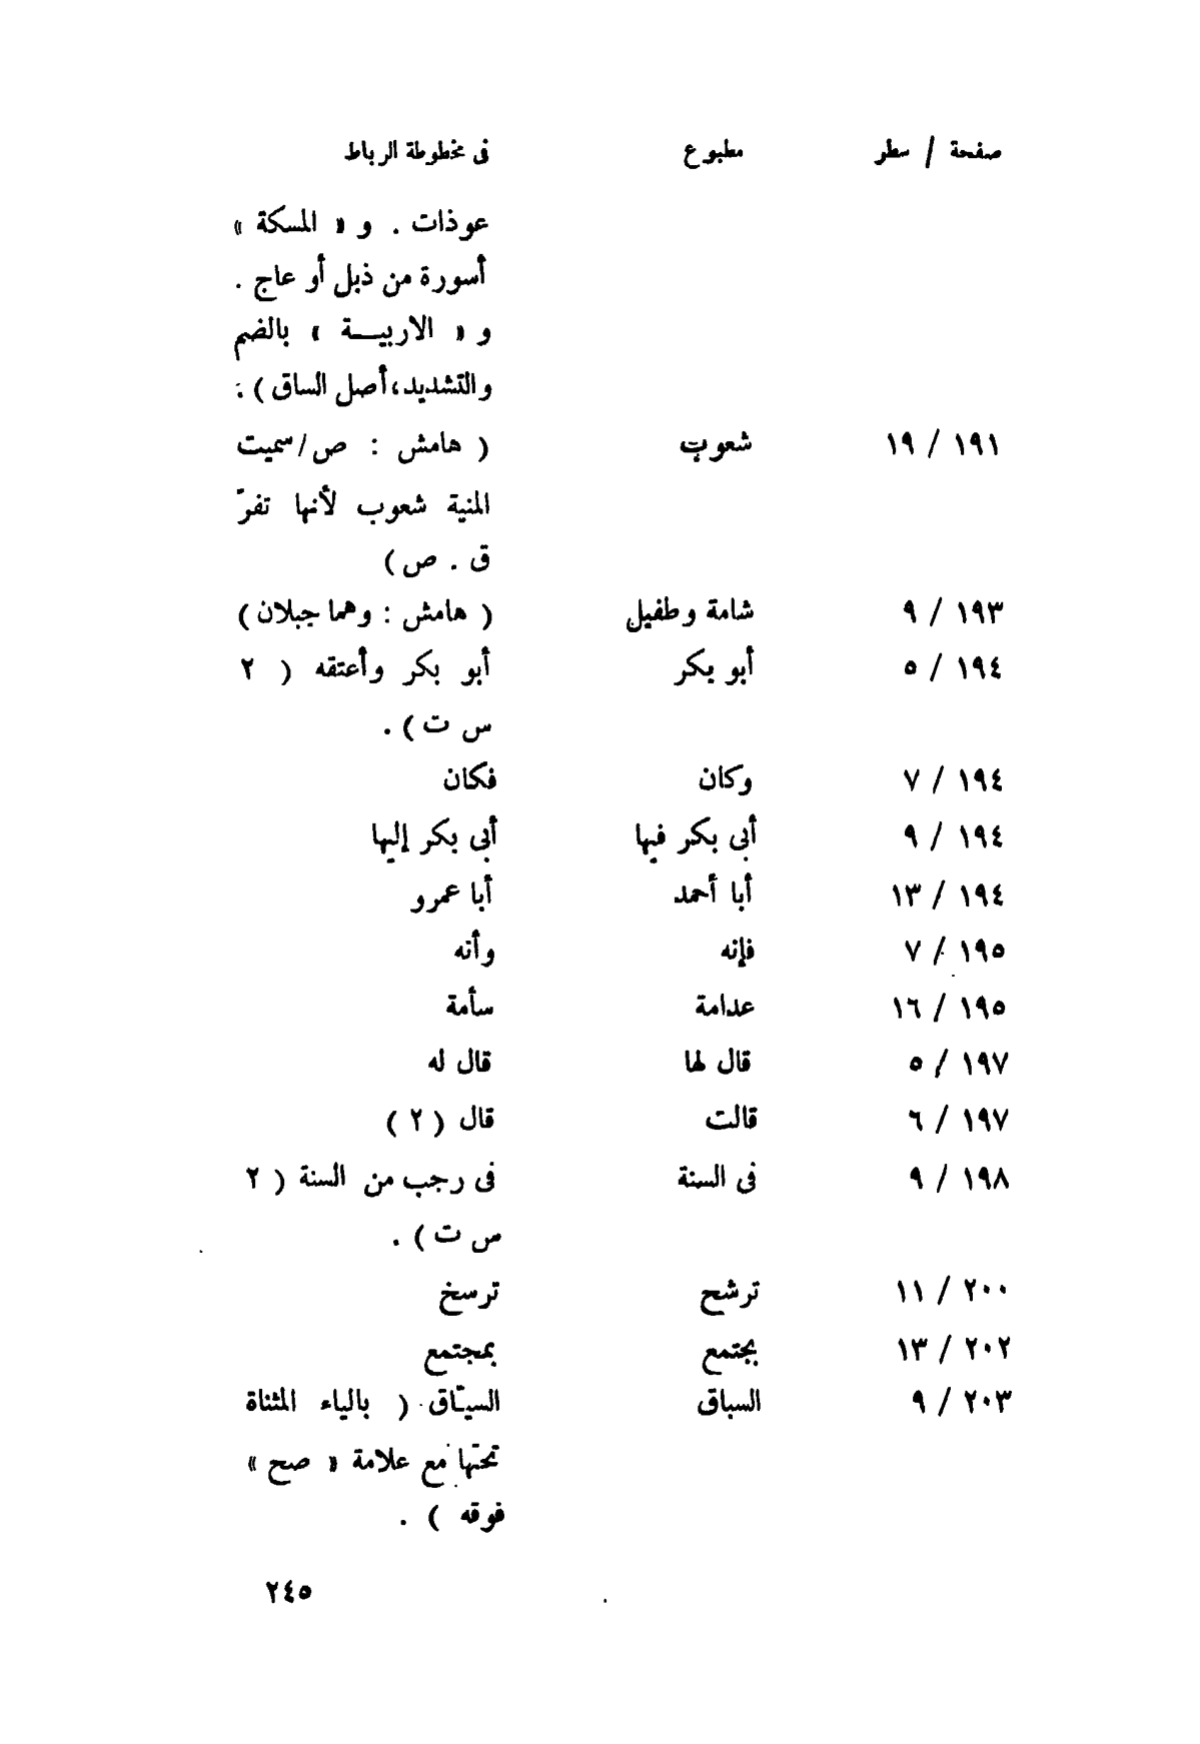 صفحة / سطر مطبوع فى مخطوطة الرباط
عوذات . و « المسكة »
أسورة من ذبل أو عاج .
و « الاربيــة » بالضم
والتشديد، أصل الساق ) .
١٩١ / ١٩ شعوب ( هامش : ص/سميت
المنية شعوب لأنها تفرّ
ق . ص )
١٩٣ / ٩ شامة وطفيل ( هامش : وهما جبلان )
١٩٤ / ٥ أبو بكر أبو بكر وأعتقه ( ٢
س ت ) .
١٩٤ / ٧ وكان فكان
١٩٤ / ٩ أبى بكر فيها أبى بكر إليها
١٩٤ / ١٣ أبا أحمد أبا عمرو
١٩٥ / ٧ فإنه وأنه
١٩٥ / ١٦ عدامة سأمة
١٩٧ / ٥ قال لها قال له
١٩٧ / ٦ قالت قال ( ٢ )
١٩٨ / ٩ فى السنة فى رجب من السنة ( ٢
س ت ) .
٢٠٠ / ١١ ترشح ترسخ
٢٠٢ / ١٣ يجتمع بمجتمع
٢٠٣ / ٩ السباق السيّاق ( بالياء المثناة
تحتها مع علامة « صح »
فوقه ) .
٢٤٥